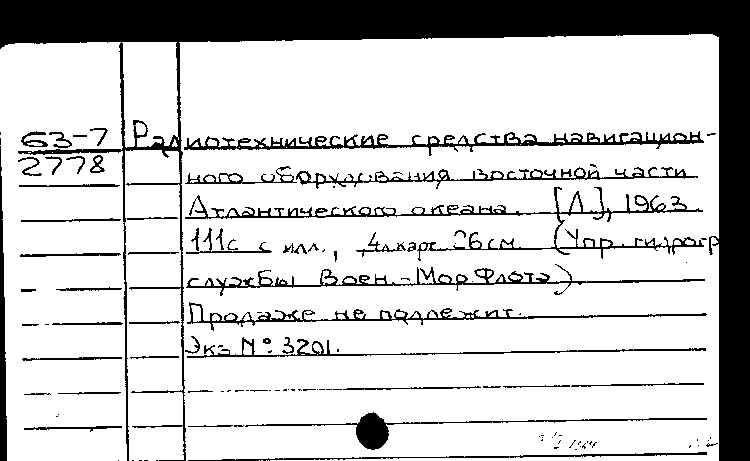 63-7 Радиотехнические средства навигацион-
2778 ного оборудования восточной части
Атлантического океана. [Л.], 1963
111с с илл., 4л.карт 26см. (Упр. гидрогр
службы Воен.-Мор.Флота).
Продаже не подлежит.
Экз №3201.